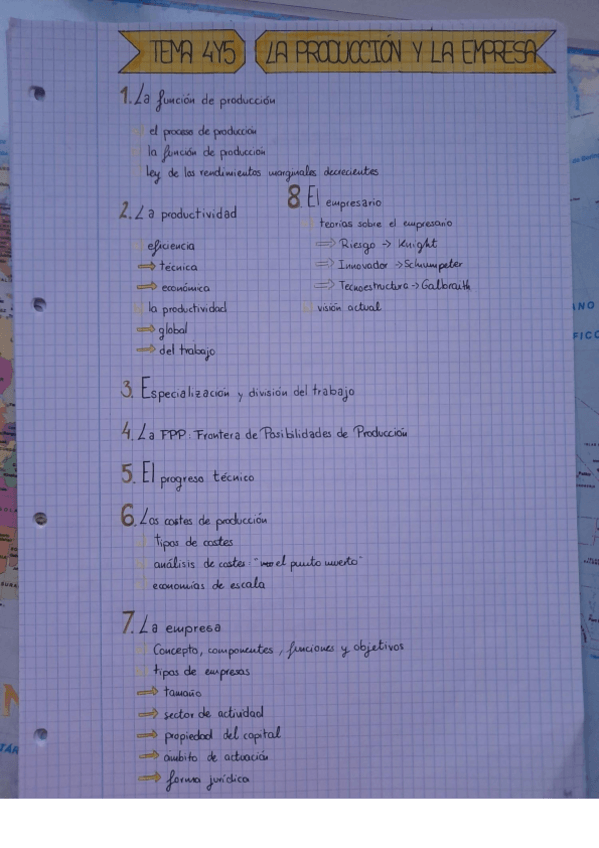 TEMA 4Y5 LA PRODUCCIÓN Y LA EMPRESA
1. La función de producción
el proceso de producción
la función de producción
ley de los rendimientos marginales decrecientes
2. La productividad
eficiencia
⇒ técnica
⇒ económica
la productividad
⇒ global
⇒ del trabajo
8. El empresario
teorías sobre el empresario
⇒ Riesgo → Knight
⇒ Innovador → Schumpeter
⇒ Tecnoestructura → Galbraith
visión actual
3. Especialización y división del trabajo
4. La FPP: Frontera de Posibilidades de Producción
5. El progreso técnico
6. Los costes de producción
tipos de costes
análisis de costes "el punto muerto"
economías de escala
7. La empresa
Concepto, componentes, funciones y objetivos
tipos de empresas
⇒ tamaño
⇒ sector de actividad
⇒ propiedad del capital
⇒ ámbito de actuación
⇒ forma jurídica